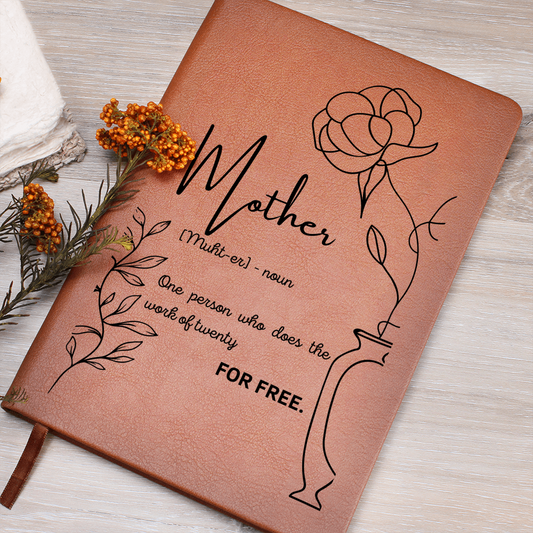 Mother
[Muht-er] - noun
One person who does the
work of twenty
FOR FREE.